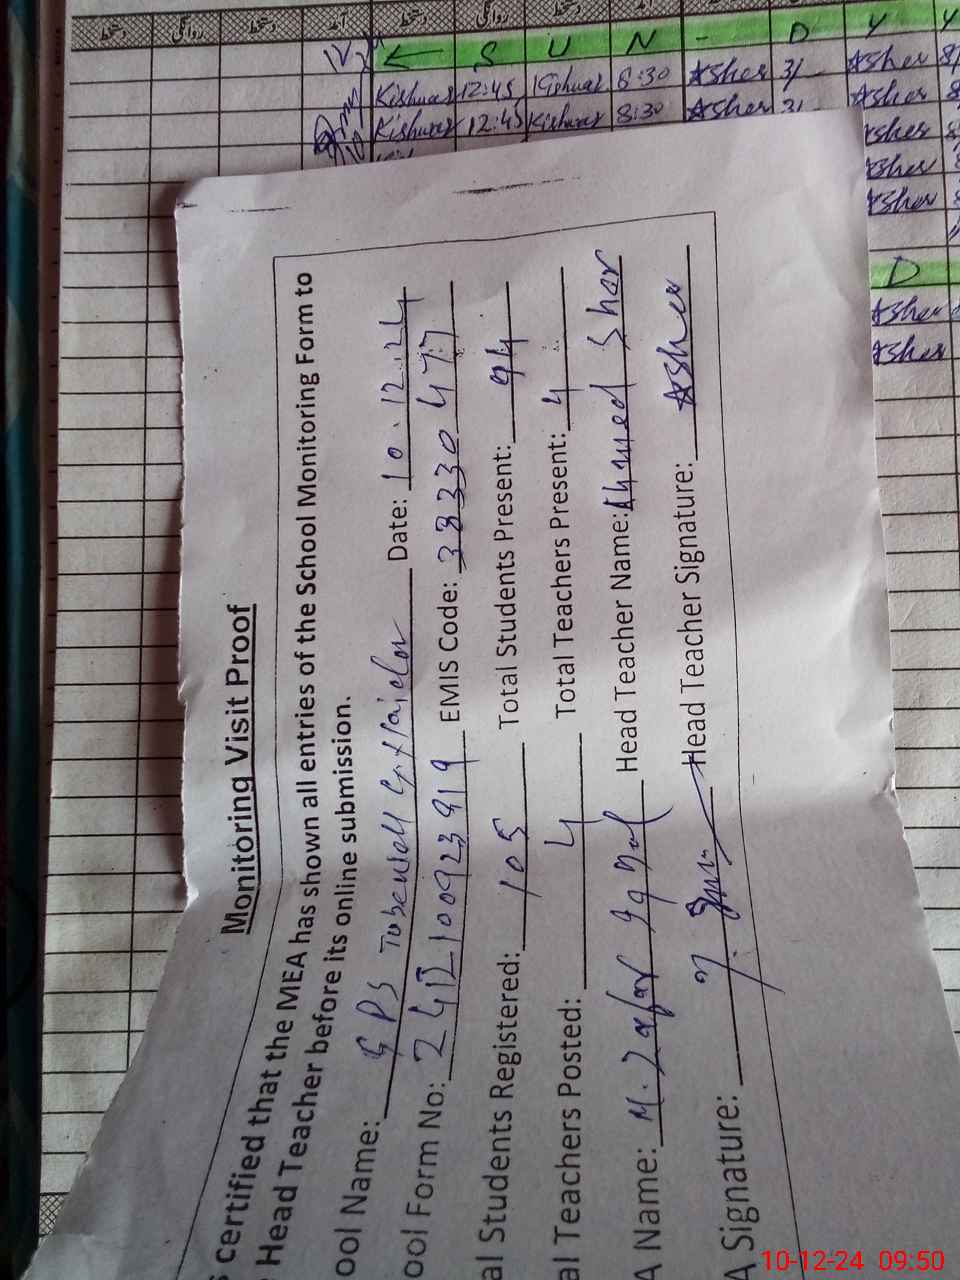 دستخط روانگی دستخط آمد دستخط روانگی دستخط
← S U N - D Y
Kishwar 12:45 Kishwar 8:30 Asher 31 Asher
Kishwar 12:45 Kishwar 8:30 Asher 31 Asher
Asher
Asher
Asher
D
Asher
Asher
Monitoring Visit Proof
certified that the MEA has shown all entries of the School Monitoring Form to
Head Teacher before its online submission.
ool Name: GPS Tubewell Date: 10.12.24
ool Form No: 2412100923919 EMIS Code: 33330477
al Students Registered: 105 Total Students Present: 94
al Teachers Posted: 4 Total Teachers Present: 4
A Name: M. Zafar Iqbal Head Teacher Name: Ahmed Sher
A Signature: Head Teacher Signature: Asher
10-12-24 09:50